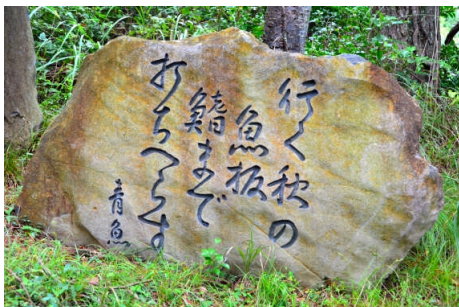 行く秋の
魚板
鰭まで
打ちへらす
青魚